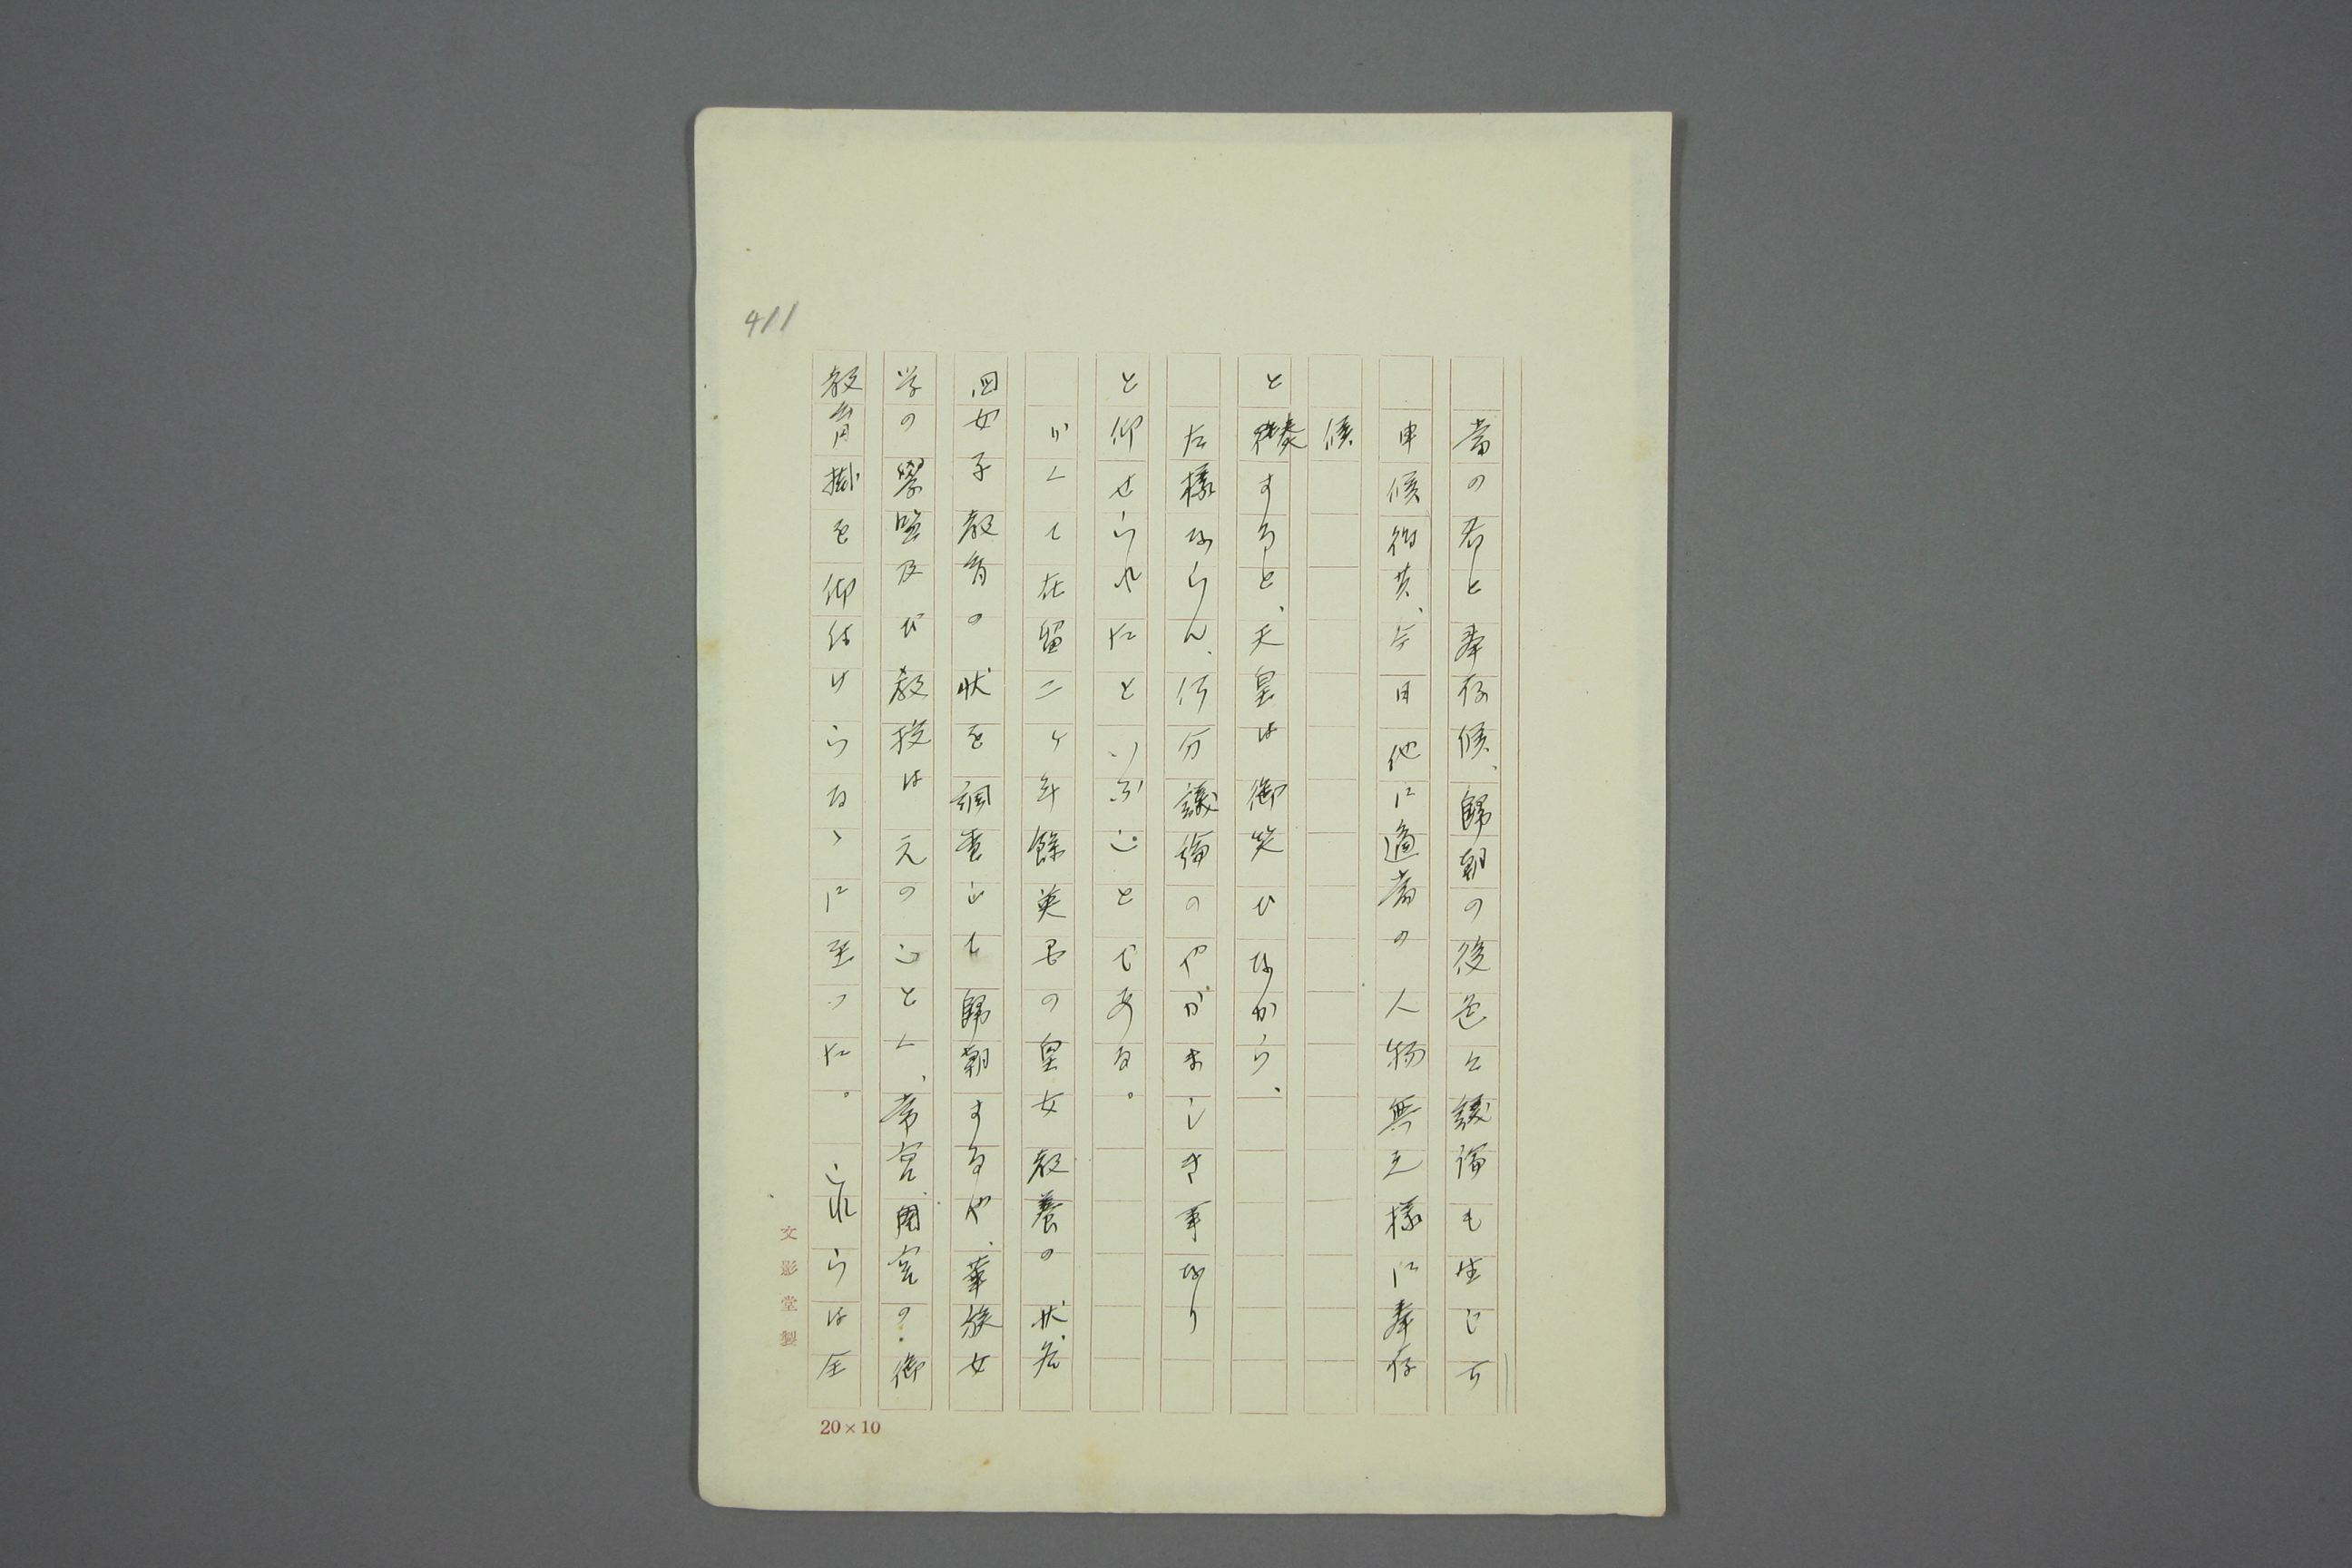 411
當の者と奉存候、歸朝の後色々議論も生じ可
申候得共、今日他に適當の人物無之樣に奉存
候
と奏するや、天皇は御笑ひながら、
左樣ならん、何分議論のやかましき事なり
と仰せられたといふことである。
かくて在留二ヶ年餘英国の皇女教養の状态
囙女子教育の状を調査して歸朝するや、華族女
学の學監及び教授は元のごとく、常宮、周宮の御
教育掛を仰付けらるゝに至つた。これらは全
文影堂製
20×10